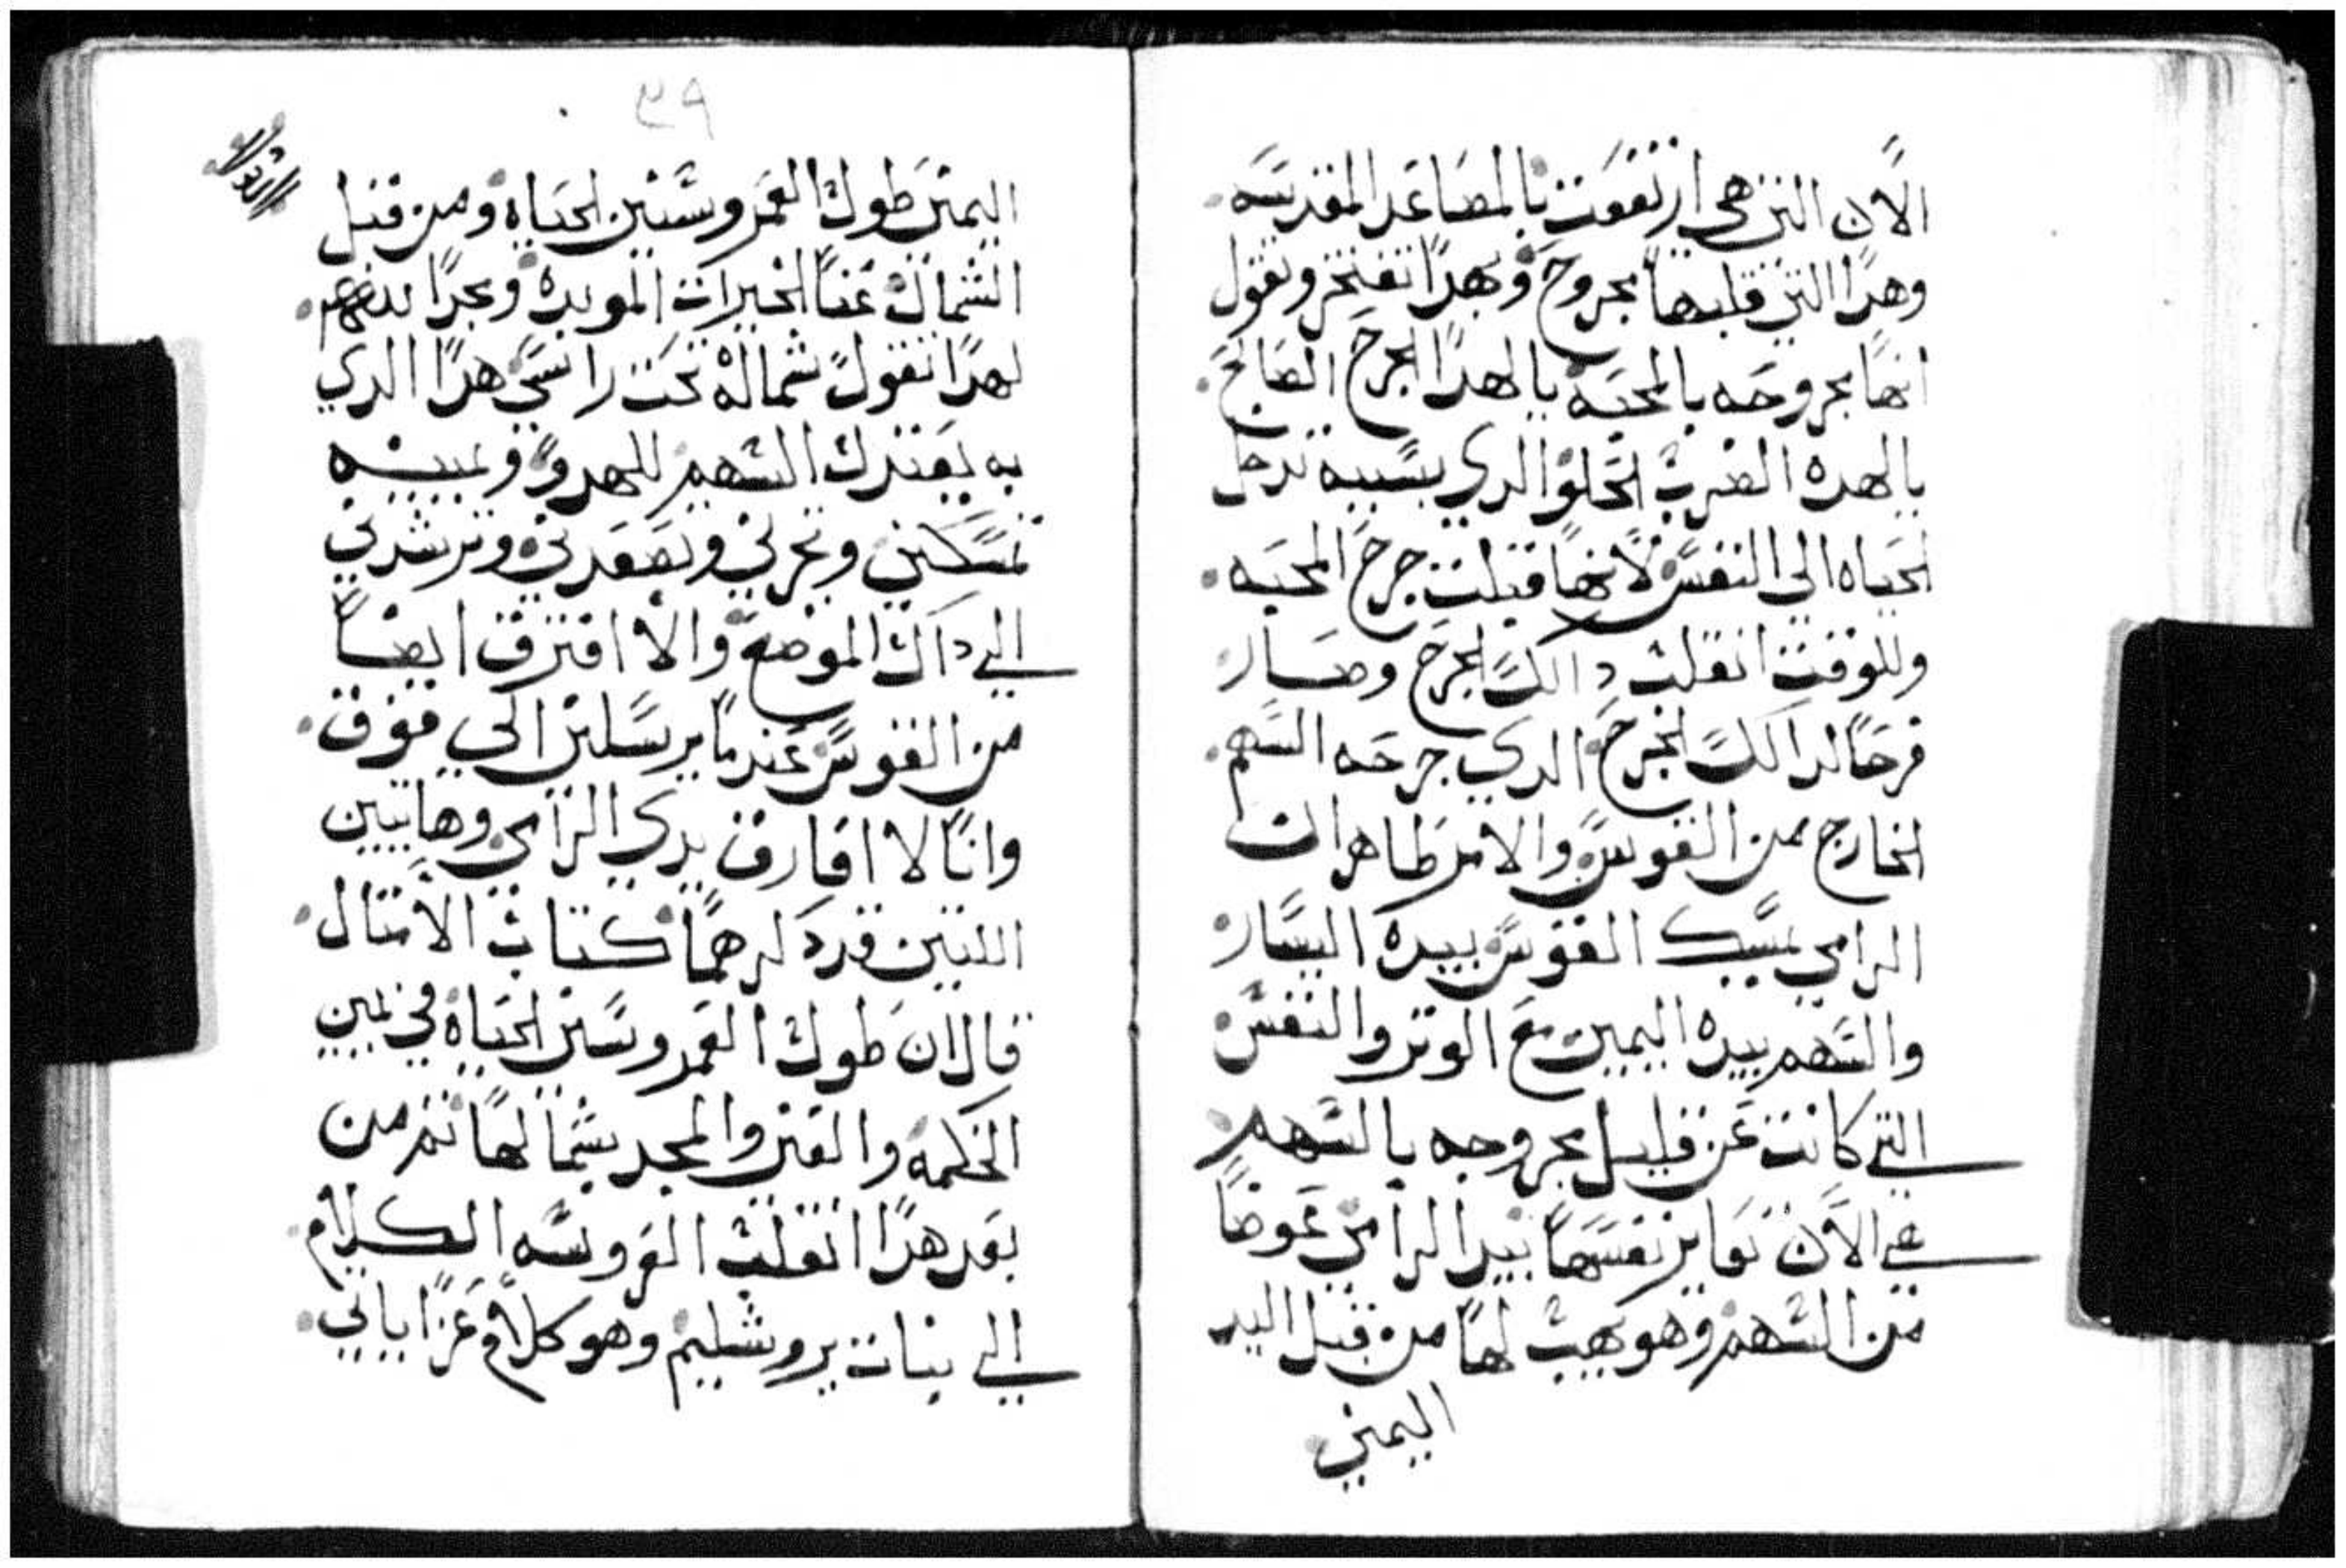 الان التي هي ارتفعت بالمصاعد المقدسه
وهدا التي قلبها مجروح وبهدا تفتخر وتقول
انها مجروحه بالمحبه يا لهدا الجرح الصالح
يا لهده الضربة الحلوا الدي بسببه تدخل
الحياه الي النفس لانها قبلت جرح المحبه
وللوقت انقلب دالك الجرح وصار
فرحا لدالك الجرح الدي جرحه السهم
الخارج من القوس والامر ظاهر ان
الرامي يمسك القوس بيده اليسار
والسهم بيده اليمين مع الوتر والنفس
التي كانت عن قليل مجروحه بالسهم
في الان تعاين نفسها بيد الرامي عوضا
من السهم وهو يهب لها من قبل اليد
اليمني
٣٩
اليمني طول العمر وسنين الحياه ومن قبل
الشمال غنا الخيرات الموبده ومجدا
لهدا تقول شماله تحت راسي هدا الدي
به يعتدل السهم للهدف ويمينه
تمسكني وتجرني وتصعدني وترشدني
الي داك الموضع والا افترق ايضا
من القوس عندما يرسلني الي فوق
وانا لا افارق يدي الرامي وهاتين
اللتين قد دكرهما كتاب الامتال
قال ان طول العمر وسني الحياه في يمين
الحكمه والغني والمجد بشمالها تم من
بعد هدا انقلت العروسه الكلام
الي بنات يروشليم وهو كلام عزاياتي